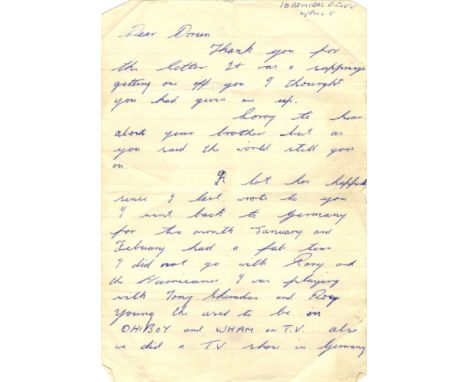 10 ADMIRAL GROVE
L'POOL 8
Dear Doreen
Thank you for
the letter It was a supprise
getting one off you I thought
you had given me up.
Sorry to hear
about your brother but as
you said the world still goes
on.
A lot has happend
since I last wrote to you
I went back to Germany
for two month January and
Febuary had a fab time
I did not go with Rory and
the Hurricanes I was playing
with Tony Sheridan and Roy
Young the used to be on
OH BOY and WHAM on T.V. also
we did a T.V. show in Germany